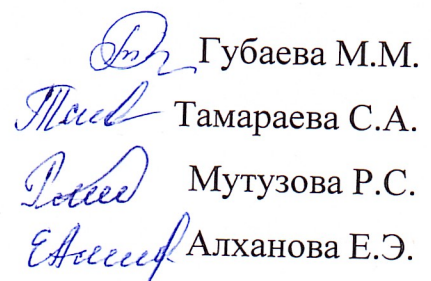 Губаева М.М.
Тамараева С.А.
Мутузова Р.С.
Алханова Е.Э.